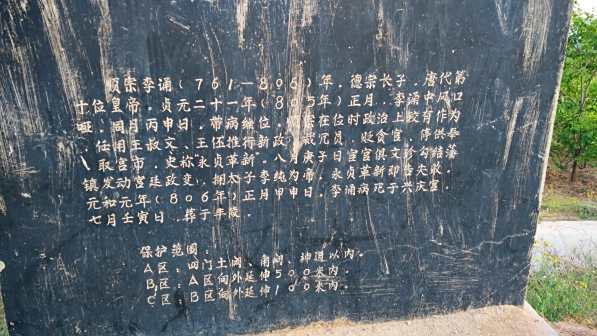 顺宗李诵(761—806)年,德宗长子,唐代第
十位皇帝,贞元二十一年(805年)正月,李诵中风口
哑,同月丙申日,带病继位,顺宗在位
任用王叔文、王伾推行新政,裁冗员,贬贪官,停供奉
取宫市,史称永贞革新。八
镇发动宫廷政变,拥太子李纯为
元和元年(806年)正月甲申日,李诵病死于兴庆宫。
七月壬寅日,葬于丰陵。
保护范围:
A区:四门土阙、角阙、神道以内。
B区:A区向外延伸500米内。
C区:B区向外延伸100米内。